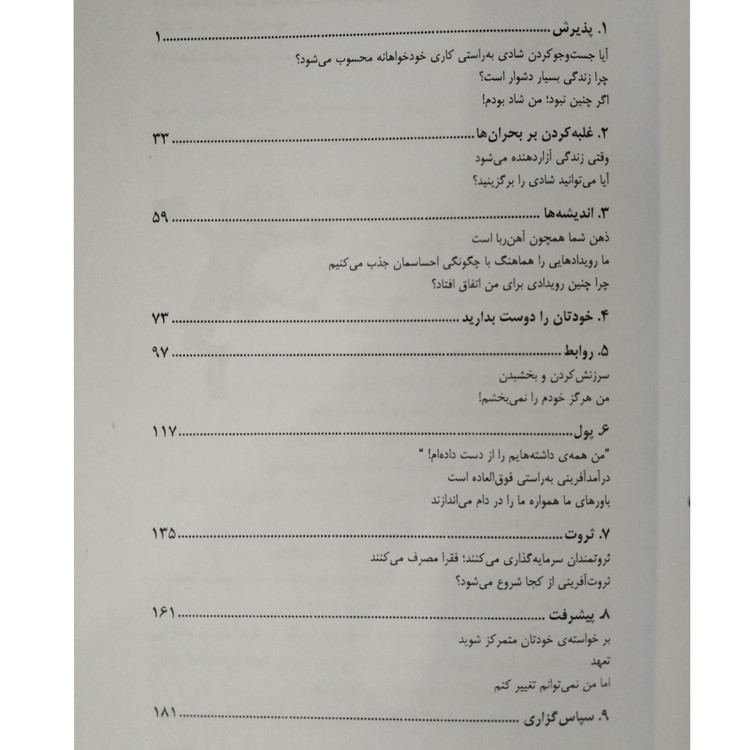 ۱. پذیرش ........ ۱
آیا جست‌وجوکردن شادی به‌راستی کاری خودخواهانه محسوب می‌شود؟
چرا زندگی بسیار دشوار است؟
اگر چنین نبود؛ من شاد بودم!
۲. غلبه‌کردن بر بحران‌ها ........ ۳۳
وقتی زندگی آزاردهنده می‌شود
آیا می‌توانید شادی را برگزینید؟
۳. اندیشه‌ها ........ ۵۹
ذهن شما همچون آهن‌ربا است
ما رویدادهایی را هماهنگ با چگونگی احساسمان جذب می‌کنیم
چرا چنین رویدادی برای من اتفاق افتاد؟
۴. خودتان را دوست بدارید ........ ۷۳
۵. روابط ........ ۹۷
سرزنش‌کردن و بخشیدن
من هرگز خودم را نمی‌بخشم!
۶. پول ........ ۱۱۷
"من همه‌ی داشته‌هایم را از دست داده‌ام! "
درآمدآفرینی به‌راستی فوق‌العاده است
باورهای ما همواره ما را در دام می‌اندازند
۷. ثروت ........ ۱۳۵
ثروتمندان سرمایه‌گذاری می‌کنند؛ فقرا مصرف می‌کنند
ثروت‌آفرینی از کجا شروع می‌شود؟
۸. پیشرفت ........ ۱۶۱
بر خواسته‌ی خودتان متمرکز شوید
تعهد
اما من نمی‌توانم تغییر کنم
۹. سپاس‌گزاری ........ ۱۸۱